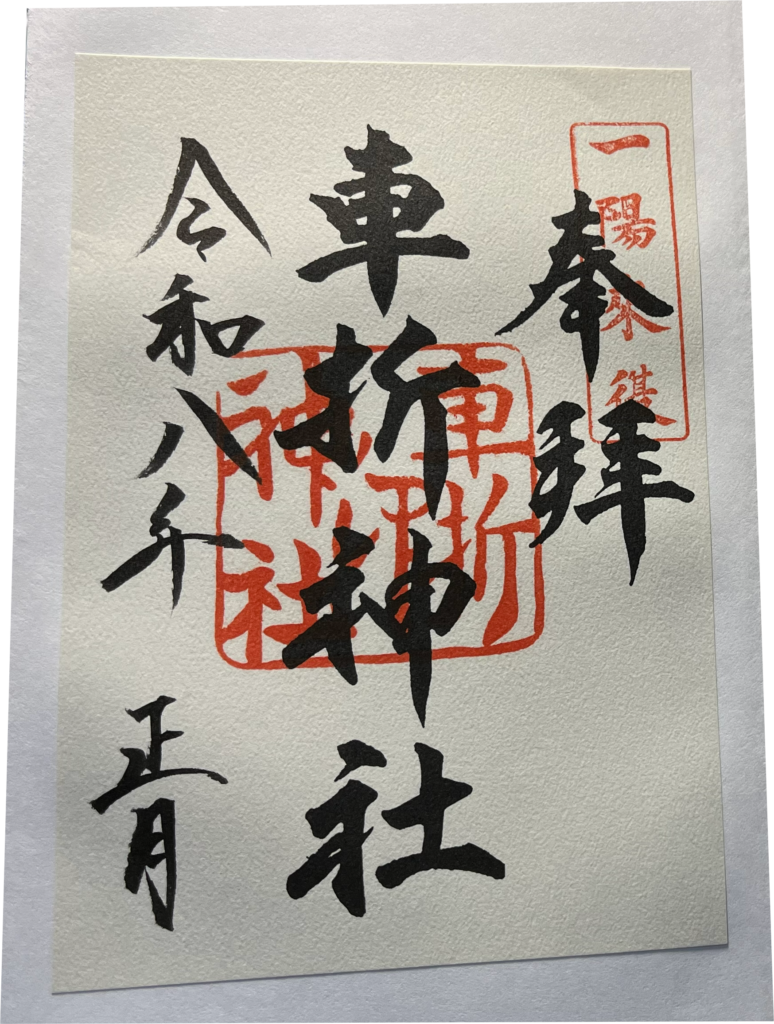 一陽来復
奉拝
車折神社
車折
神社
令和八年 正月